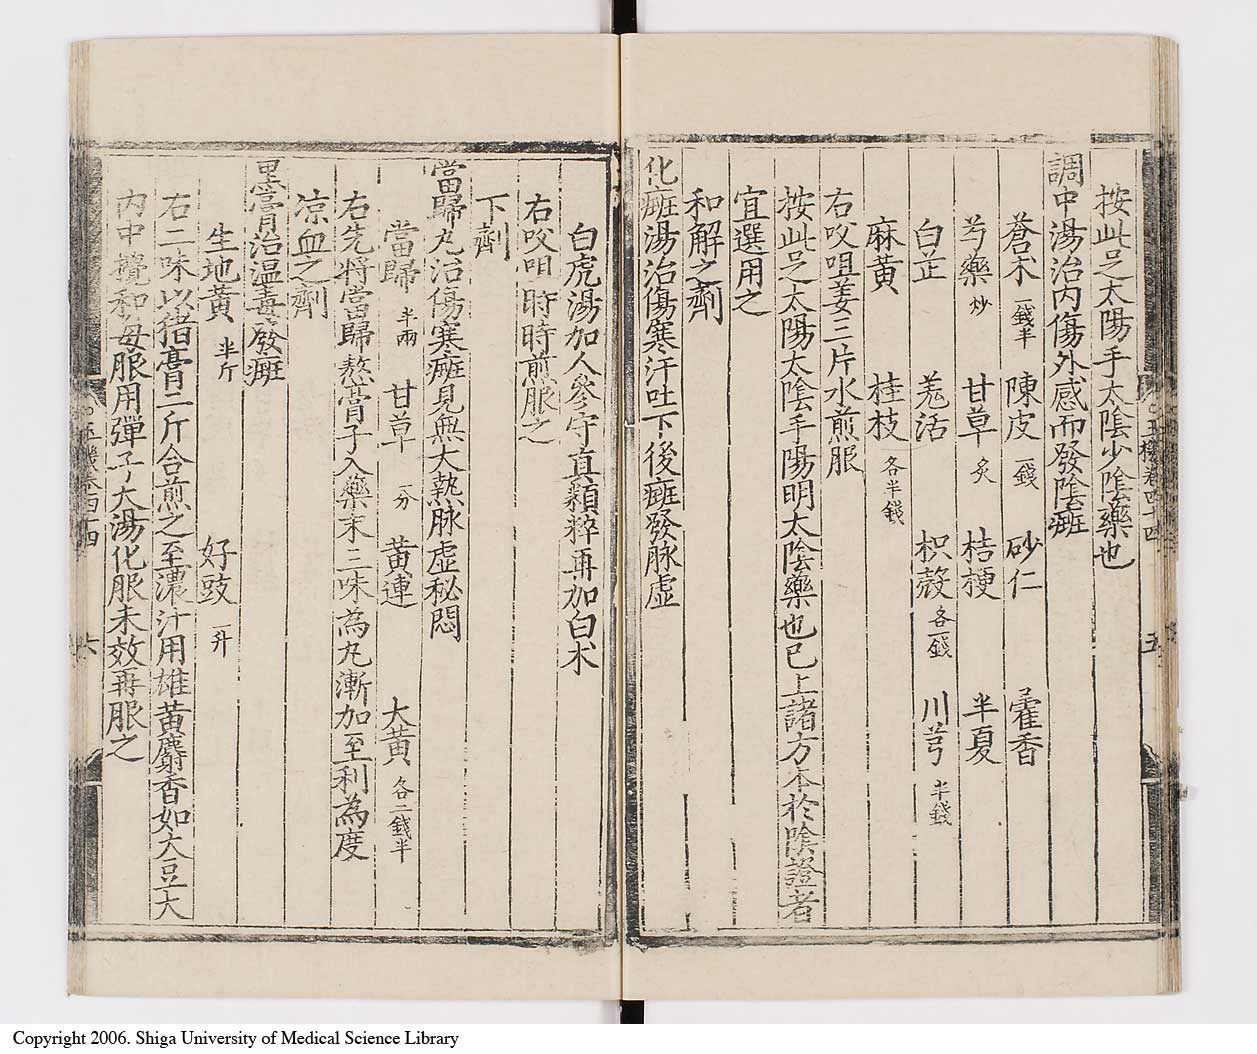 按此足太陽手太陰少陰藥也
調中湯治内傷外感而發陰斑
蒼朮 一錢半 陳皮 一錢 砂仁 藿香
芍藥 炒 甘草 炙 桔梗 半夏
白芷 羗活 枳殼 各一錢 川芎 半錢
麻黄 桂枝 各半錢
右㕮咀姜三片水煎服
按此足太陽太陰手陽明太陰藥也已上諸方本於陰證者
宜選用之
和解之劑
化斑湯治傷寒汗吐下後斑發脉虚
白虎湯加人參守真類粹再加白朮
右㕮咀時時煎服之
下劑
當歸丸治傷寒斑見無大熱脉虚秘悶
當歸 半兩 甘草 一分 黄連 大黄 各二錢半
右先將當歸熬膏子入藥末三味為丸漸加至利為度
凉血之劑
黑膏治温毒發斑
生地黄 半斤 好豉 一升
右二味以猪膏二斤合煎之至濃汁用雄黄麝香如大豆大
内中攪和每服用彈子大湯化服未效再服之
五
六
Copyright 2006. Shiga University of Medical Science Library